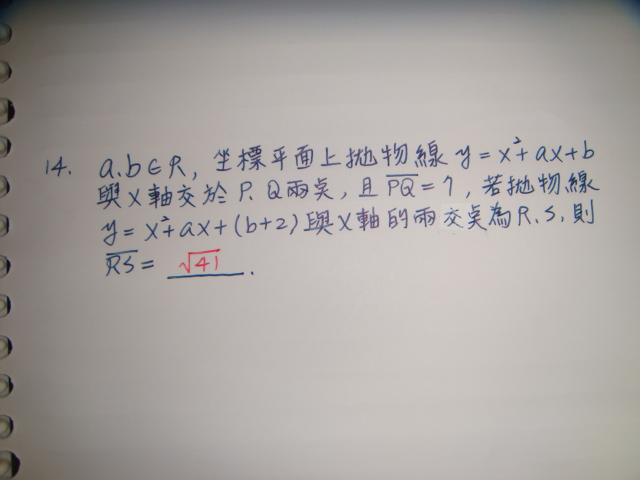 14. a.b∈R, 坐標平面上拋物線 y = x²+ax+b
與X軸交於P.Q兩点, 且 PQ̅ = 7, 若拋物線
y = x²+ax+(b+2)與X軸的兩交点為R.S,則
RS̅ = √41.